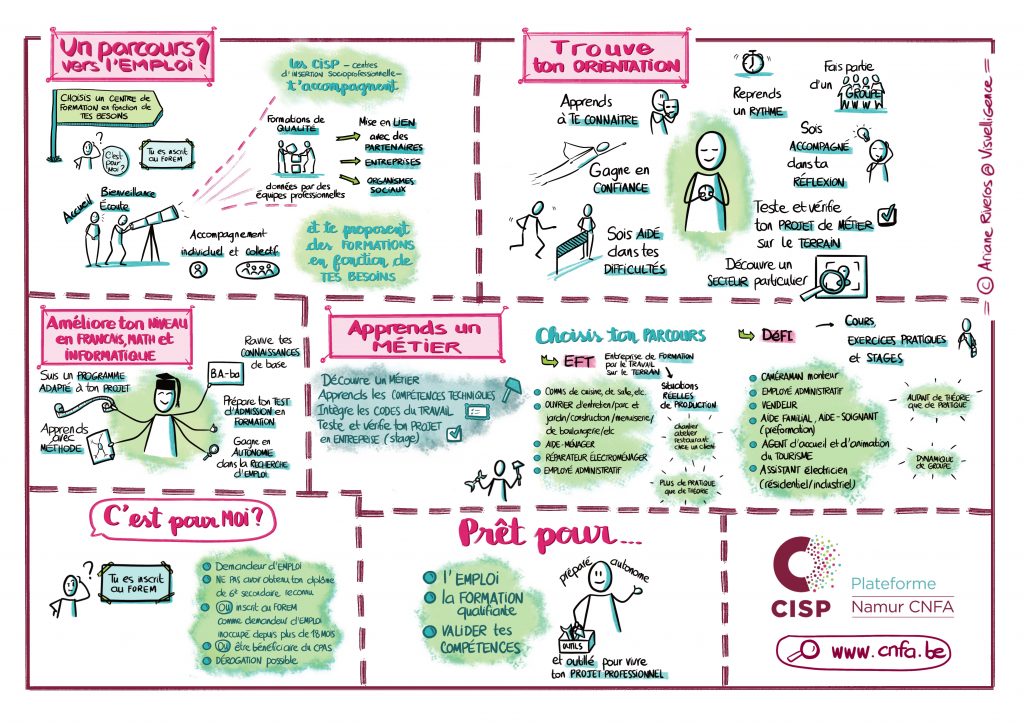 Un parcours
vers l'EMPLOI ?
CHOISIS UN CENTRE de
FORMATION en fonction de
TES BESOINS
C'est
pour
Moi ?
Tu es inscrit
au FOREM
Accueil
Bienveillance
Écoute
Accompagnement
individuel et collectif
les CISP - centres
d'INSERTION SOCIOPROFESSIONNELLE -
t'accompagnent
Formations de
QUALITÉ
données par des
équipes professionnelles
Mise en LIEN
avec des
PARTENAIRES
ENTREPRISES
ORGANISMES
SOCIAUX
et te proposent
des FORMATIONS
en fonction de
TES BESOINS
Trouve
ton ORIENTATION
Apprends
à TE CONNAITRE
Gagne en
CONFIANCE
Sois AIDÉ
dans tes
DIFFICULTÉS
Reprends
un RYTHME
Fais partie
d'un GROUPE
Sois
ACCOMPAGNÉ
dans ta
RÉFLEXION
Teste et vérifie
ton PROJET de MÉTIER
sur le TERRAIN
Découvre un
SECTEUR particulier
© Ariane Riveros @ VisuelliGence
Améliore ton NIVEAU
en FRANCAIS, MATH et
INFORMATIQUE
Suis un PROGRAMME
ADAPTÉ à ton PROJET
Apprends
avec
MÉTHODE
Ravive tes
CONNAISSANCES
de base
BA-ba
Prépare ton TEST
d'ADMISSION en
FORMATION
Gagne en
AUTONOMIE
dans la RECHERCHE
d'EMPLOI
Apprends un
MÉTIER
Découvre un MÉTIER
Apprends les COMPÉTENCES TECHNIQUES
Intègre les CODES du TRAVAIL
Teste et vérifie ton PROJET
en ENTREPRISE (stage)
Choisis ton PARCOURS
EFT
Entreprise de FORMATION
par le TRAVAIL
sur le TERRAIN
Situations
RÉELLES
de PRODUCTION
COMMIS de cuisine, de salle, etc.
OUVRIER d'entretien/parc et
jardin/construction/menuiserie/
de boulangerie/etc
AIDE-MÉNAGER
RÉPARATEUR ÉLECTROMÉNAGER
EMPLOYÉ ADMINISTRATIF
chantier
atelier
restaurant
chez un client
PLUS de PRATIQUE
que de THÉORIE
DéFI
COURS,
EXERCICES PRATIQUES
et STAGES
CAMÉRAMAN monteur
EMPLOYÉ ADMINISTRATIF
VENDEUR
AIDE FAMILIAL, AIDE-SOIGNANT
(préformation)
AGENT d'accueil et d'animation
du TOURISME
ASSISTANT électricien
(résidentiel/industriel)
AUTANT de THÉORIE
que de PRATIQUE
DYNAMIQUE
de GROUPE
C'est pour MOI ?
Tu es inscrit
au FOREM
Demandeur d'EMPLOI
NE PAS avoir obtenu ton diplôme
de 6e secondaire reconnu
OU inscrit au FOREM
comme demandeur d'EMPLOI
inoccupé depuis plus de 18 MOIS
OU être bénéficiaire du CPAS
DÉROGATION possible
Prêt pour...
l'EMPLOI
la FORMATION
qualifiante
VALIDER tes
COMPÉTENCES
préparé
autonome
OUTILS
et outillé pour vivre
ton PROJET PROFESSIONNEL
CISP
Plateforme
Namur CNFA
www.cnfa.be